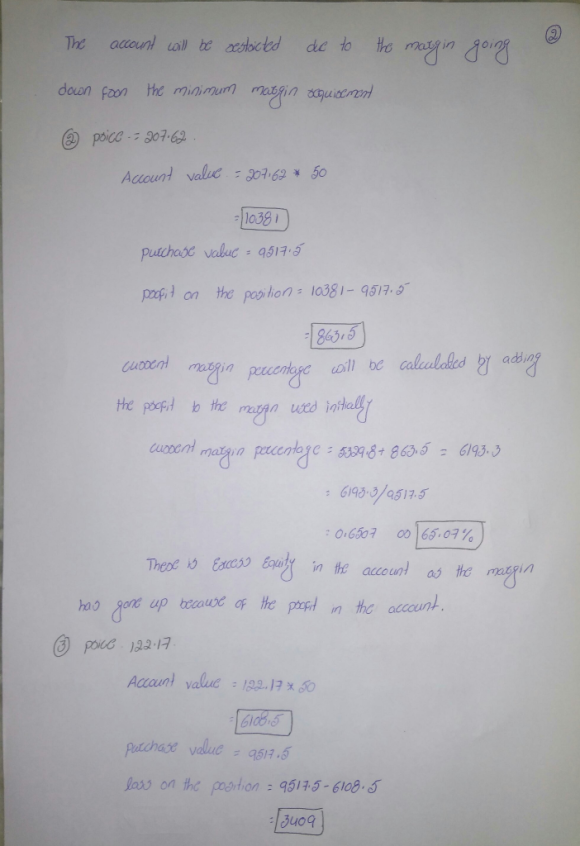 ②
The account will be restricted due to the margin going
down from the minimum margin requirement
② price = 207.62.
Account value = 207.62 * 50
= 10381
purchase value = 9517.5
profit on the position = 10381 - 9517.5
= 863.5
current margin percentage will be calculated by adding
the profit to the margin used initially
current margin percentage = 5329.8 + 863.5 = 6193.3
= 6193.3/9517.5
= 0.6507 or 65.07%
There is Excess Equity in the account as the margin
has gone up because of the profit in the account.
③ price 122.17.
Account value = 122.17 * 50
= 6108.5
purchase value = 9517.5
loss on the position = 9517.5 - 6108.5
= 3409